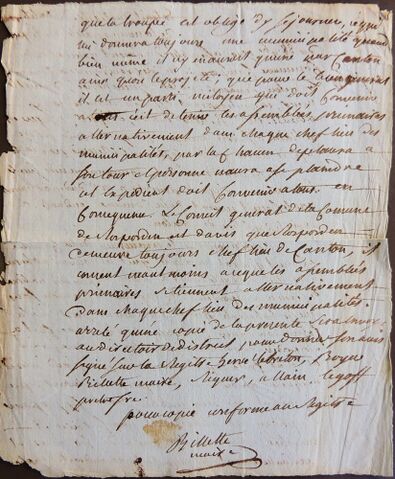 que la troupe est obligé de sejourner, ce qui
lui donnera toujours une municipalité quand
bien même il n'y auroit qu'une par Canton
ainsi que le projette, que pour le bien général
il est un parti mitoyen qui doit Convenir
a tous, c'est de tenir les assemblées primaires
alternativement dans chaque chef lieu des
municipalités, par la Chacun deplacera a
son tour et personne n'aura a se plaindre
cet Expedient doit Convenir a tous. en
Consequence. Le Conseil général de la Commune
de Rosporden est d'avis que Rosporden
demeure toujours chef lieu de Canton, il
consent neantmoins a ce que les assemblées
primaires se tiennent alternativement
dans chaque chef lieu des municipalités.
arrete qu'une copie de la presente sera
au directoire de district pour donner son avis
signé sur le Registre
Billette maire, allain, legoff
pour copie conforme au Registre
Billette
maire